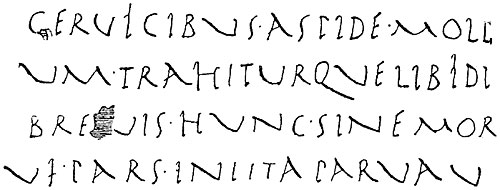 CERUICIBUS·ASPIDE·MOLL
UM·TRAHITURQUELIBIDI
BREUIS·HUNC·SINEMOR
UI·PARS·INLITAPARUAU